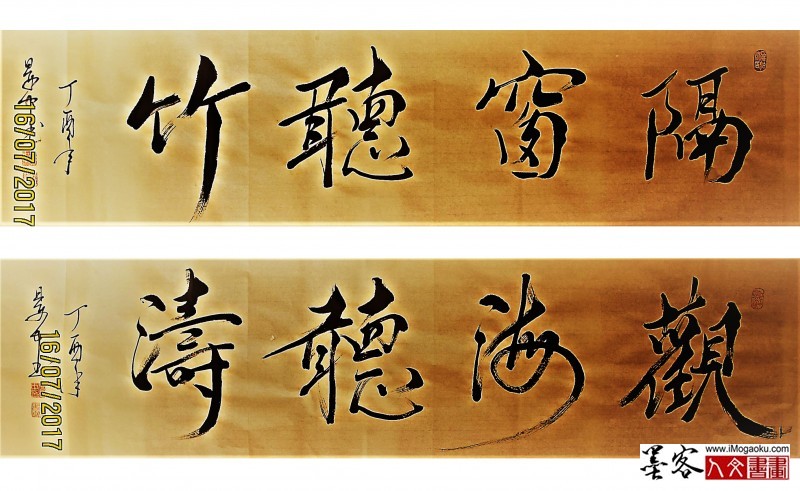 隔窗聽竹
丁酉年
16/07/2017
觀海聽濤
丁酉年
16/07/2017
墨客
www.iMogaoku.com
人文書畫